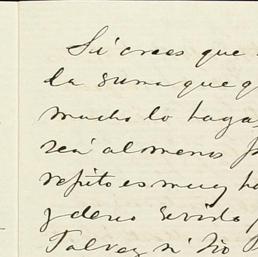 Si crees que
la suma que q
mucho lo haga
reá almenos p
repito es muy h
y deseo servirla
Talvez si Tio